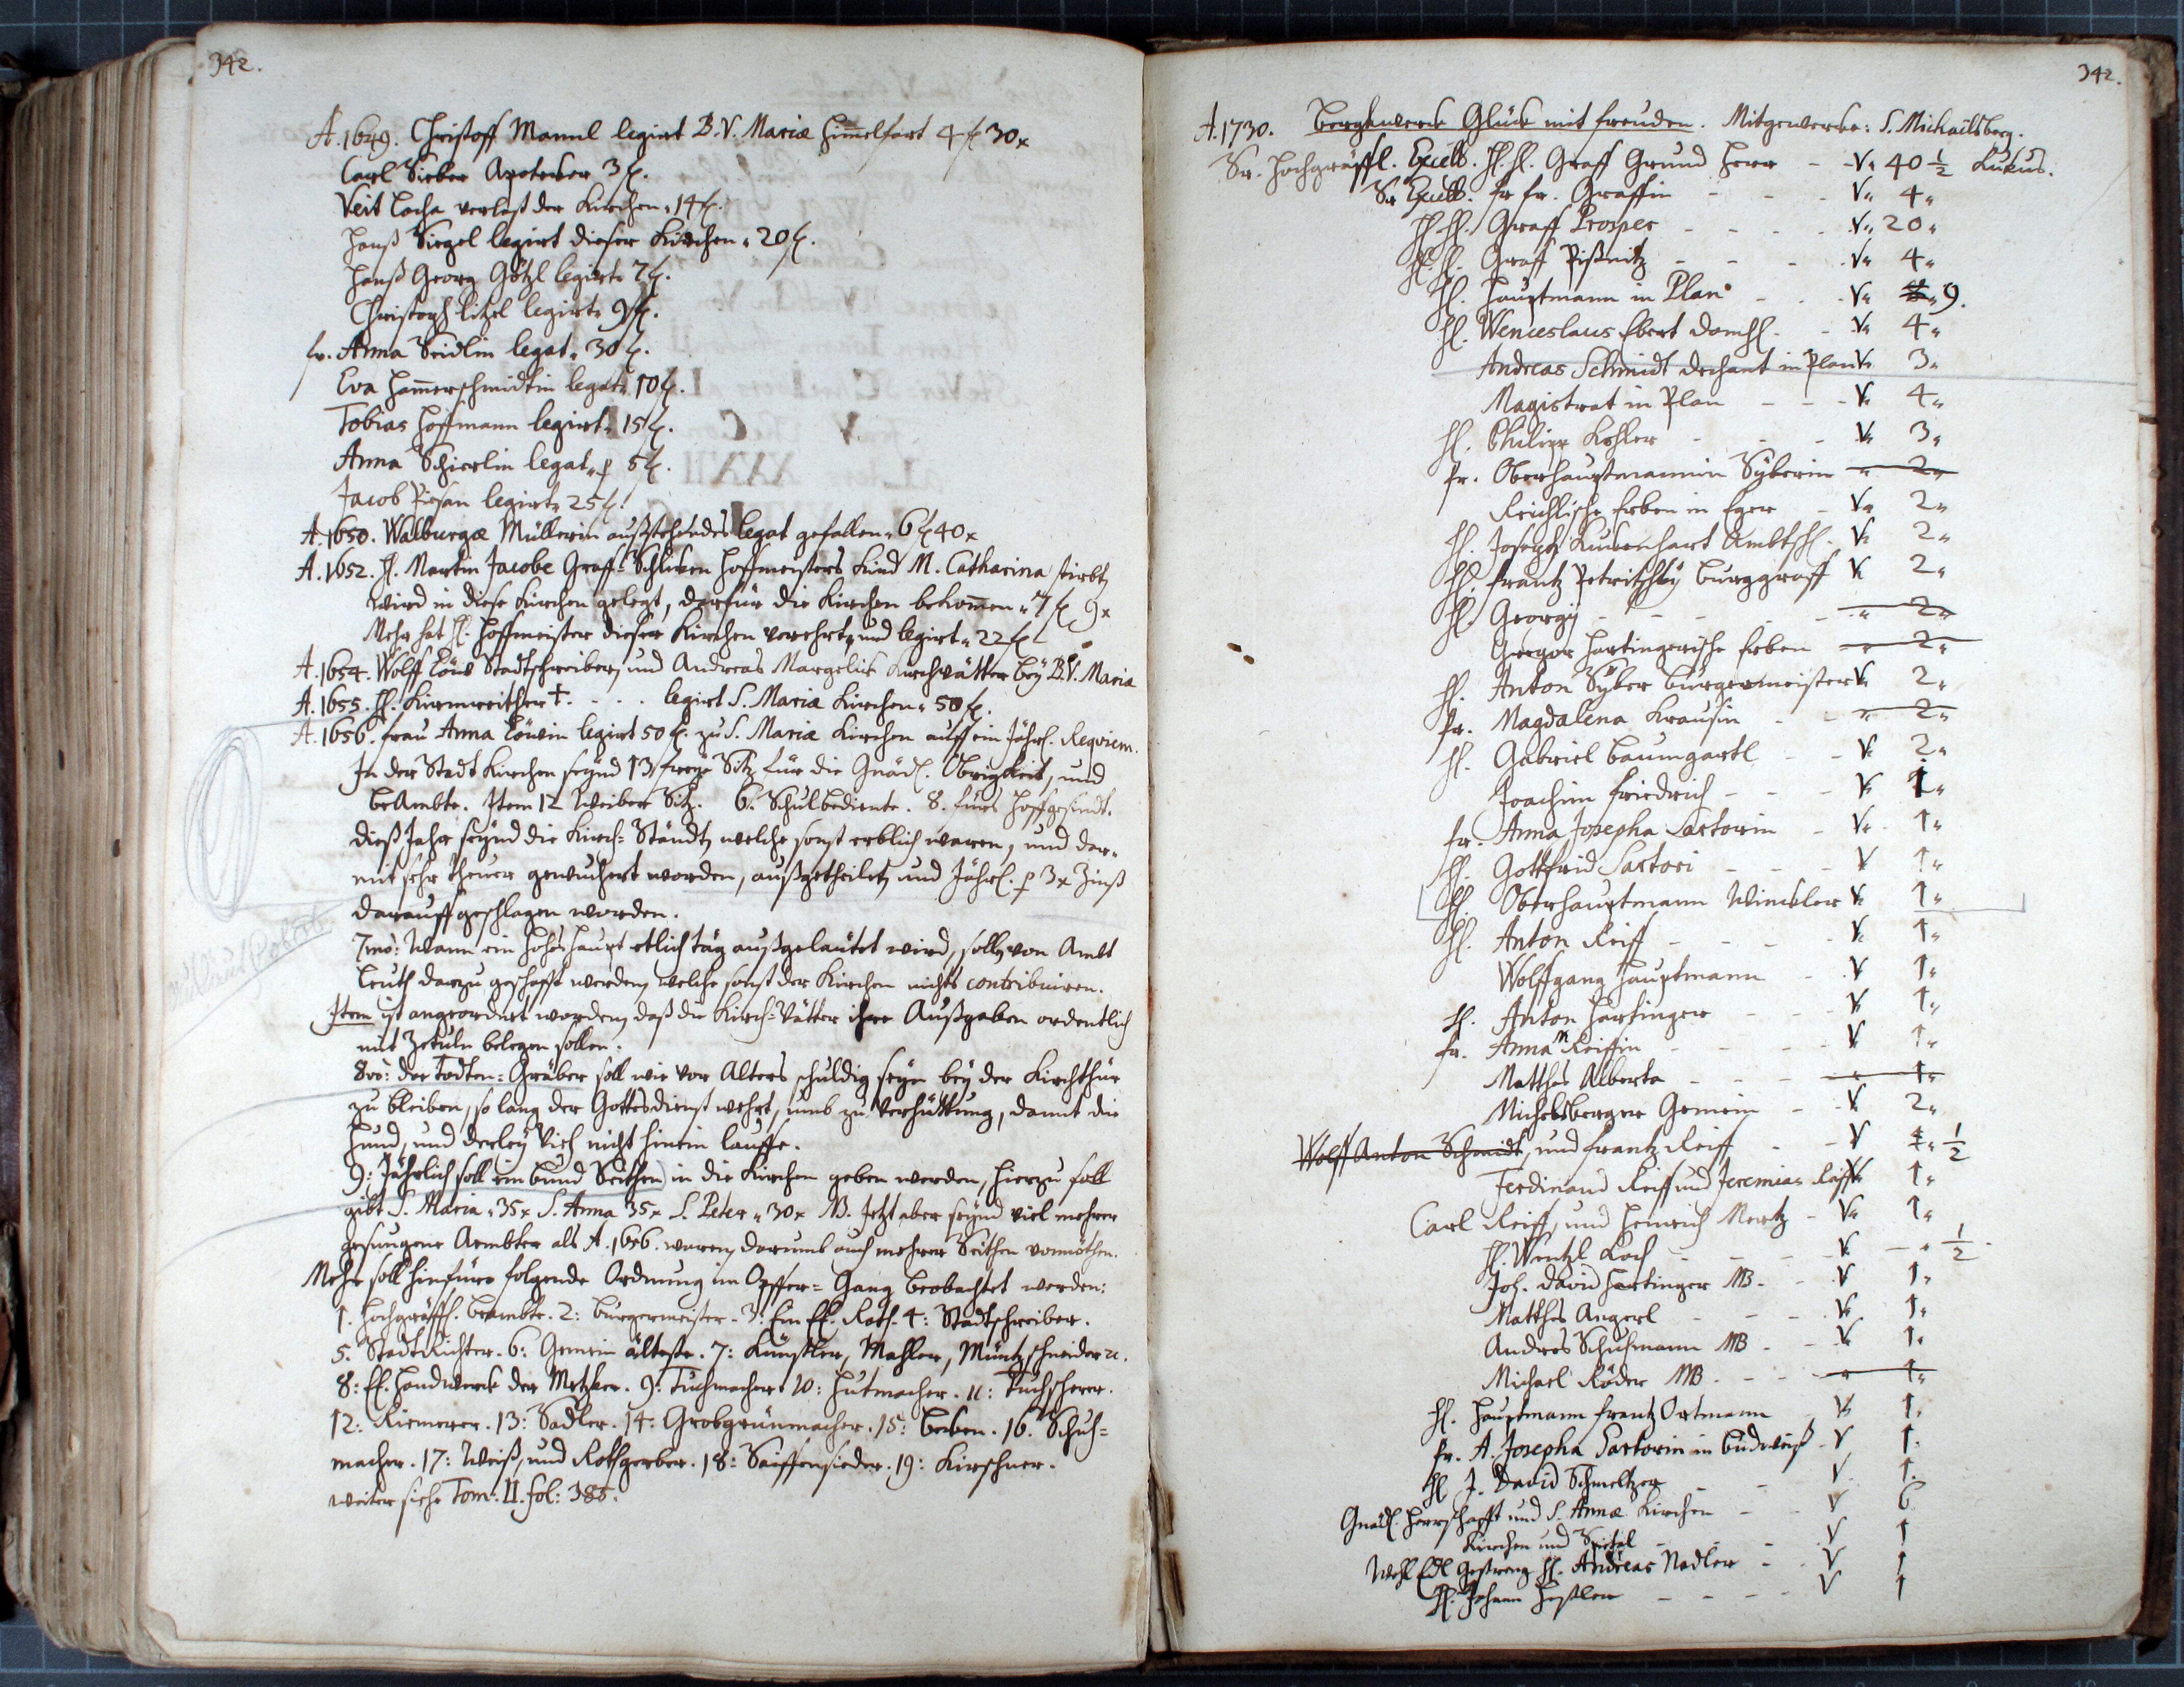 342.
A. 1649. Christoff Mannl legirt B. V. Mariæ Him̄elfart 4 f 30 x
Carl Sieber Apotecker 3 f.
Veit Locha verlast der Kirchen „ 14 f.
Hanß Siegel legirt dieser Kirchen „ 20 f.
Hanß Georg Götzl legirt „ 7 f.
Christoph Litzel legirt „ 9 f.
fr. Anna Seidlin legat „ 30 f.
Eva Ham̄erschmidtin legat „ 10 f.
Tobias Hoffmann legirt „ 15 f.
Anna Schierlin legat „ p 5 f.
Jacob legirt „ 25 f.
A. 1650. Walburgæ Müllerin außstehendes legat gefallen „ 6 f 40 x
A. 1652. H. Martin Jacobe Graff-Schlicken Hoffmeisters kind M. Catharina stirbt,
wird in diese Kirchen gelegt, darfür die Kirchen bekom̄en „ 7 f 9 x
Mehr hat H. Hoffmeister dieser Kirchen verehrt, und legirt „ 22 f
A. 1654. Wolff Löw Stadtschreiber, und Andreas Margelik Kirchvätter bey B. V. Maria
A. 1655. H. Kirmreither †. . . . legirt S. Mariæ Kirchen „ 50 f.
A. 1656. frau Anna Löwin legirt 50 f. zu S. Mariæ Kirchen auff ein Jährl. Reqviem.
In der Stadt Kirchen seynd 13 freye Sitz für die Gnäd. Obrigkeit, und
beAmbte. Item 12 Weiber Sitz. 6. Schulbediente. 8. fürs Hoffgesindt.
dieß Jahr seynd die Kirch-Ständt, welche sonst erblich waren, und dar-
mit sehr theuer gewuchert worden, außgetheilet, und Jährl. p 3 x Zinß
darauff geschlagen worden.
7mo: Wann ein hohes haupt etlich täg außgeläutet wird, sollen von Ambt
Leuth darzu geschafft werden, welche sonst der Kirchen nichts contribuiren.
Item ist angeordnet worden, daß die Kirch-Vätter ihre Außgaben ordentlich
mit Zetuln belegen sollen.
8vo: der Todten-Gräber soll wie vor Alters schuldig seyn bey der Kirchthür
zu bleiben, so lang der Gottesdienst wehrt, umb zu Verhüttung, damit die
Hund, und derley Vieh nicht hinein lauffe.
9: Jährlich soll ein bund Seithen in die Kirchen geben werden, hierzu soll
gibt S. Maria „ 35 x S. Anna 35 x S. Peter „ 30 x NB. Jetzt aber seynd viel mehrer
gesungene Aembter als A. 1656. waren, darumb auch mehrer Seithen vonnöthen.
Mehr soll hinfüro folgende Ordnung im Opffer-Gang beobachtet werden:
1. Hochgräffl. beambte. 2: burgermeister. 3: Ein E. Rath. 4: Stadtschreiber.
5. StadtRichter. 6: Gemein ältestr. 7: Künstler, Mahler, Müntzschneider ꝛc.
8: E. Handwerck der Metzker. 9: Tuchmacher 10: Hutmacher. 11: Tuchscherer.
12: Riemerer. 13: Sadler. 14: Grobgrünmacher. 15: becken. 16. Schuh-
macher. 17: Weiß, und Rothgerber. 18: Saiffensieder. 19: Kirschner.
weiter siehe Tom: II. fol: 385.
342.
A. 1730. Berghwerck Glück mit freuden. Mitgewercke: S. Michaëlsberg.
Sr. Hochgräffl. Excell. H. H. Graff Grund Herr - V „ 40 1/2 Kukus.
Sr Excell. fr fr. Graffin - - - V „ 4 „
H. H. Graff Prosper - - - - V „ 20 „
H. H. Graff - - - V „ 4 „
H. Hauptmann in Plan - - - V „ 9.
H. Wenceslaus Ebert - - V „ 4 „
Andreas Schmidt dechant in Plan V „ 3 „
Magistrat in Plan - - - V „ 4 „
H. Philipp Kohler - - - V „ 3 „
fr. Oberhauptmannin Syberin „ 2 „
Reichlische Erben in Eger - V „ 2 „
H. Joseph Ambtsh. V „ 2 „
H. Frantz burggraff V „ 2 „
H. Georgij - - - - „ 2 „
Gregor Hartingerische Erben „ 2 „
H. Anton Syber burgermeister V „ 2 „
fr. Magdalena Krausin - - „ 2 „
H. Gabriel baumgartl - - V „ 2 „
Joachim Friedrich - - - V „ 1 „
fr. Anna Josepha Sartorin - V „ 1 „
H. Gottfrid Sartori - - - V 1 „
H. Oberhauptmann Winckler V „ 1 „
H. Anton Reiff - - - - V „ 1 „
Wolffgang Hauptmann - V 1 „
H. Anton Hartinger - - - V „ 1 „
fr. Anna Reiffin - - - - V 1 „
Matthes Alberta - - - „ 1 „
Michelsberger Gemein - - V 2 „
Wolff Anton Schmidt, und frantz Reiff - - V 1/2
Ferdinand Reiff und Jeremias Reiff V 1 „
Carl Reiff, und Heinrich Mertz - V „ 1 „
H. Wentzl Koch - - - V „ 1/2
Joh. David Hartinger MB. - V 1 „
Matthes Angerl - - - V „ 1 „
Andres Schuhmann MB - - V 1 „
Michael Röder MB. - - - „ 1 „
H. Hauptmann frantz Ortmann V „ 1 „
fr. A. Josepha Sartorin in budweiß. V 1.
H. J. David Schmeltzer - - V 1.
Gnäd. Herrschafft und S. Annæ Kirchen - - V 6
Kirchen und Spittal - - V 1
Wohl Edl Gestreng H. Andreas Nadler - - V 1
H. Johann Heßler - - - - V 1